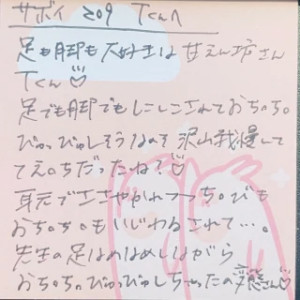 サボイ 209 Tくんへ
足も脚も大好きな甘えん坊さん
Tくん♡
足でも脚でもしこしこされておち〇ち〇
ぴゅっぴゅしそうなのを沢山我慢して
てえ〇ちだったね?♡
耳元でささやかれつつち〇びも
おち〇ち〇もいじわるされて…。
先生の足はめはめしながら
おち〇ち〇ぴゅっぴゅしちゃったの変態さん♡